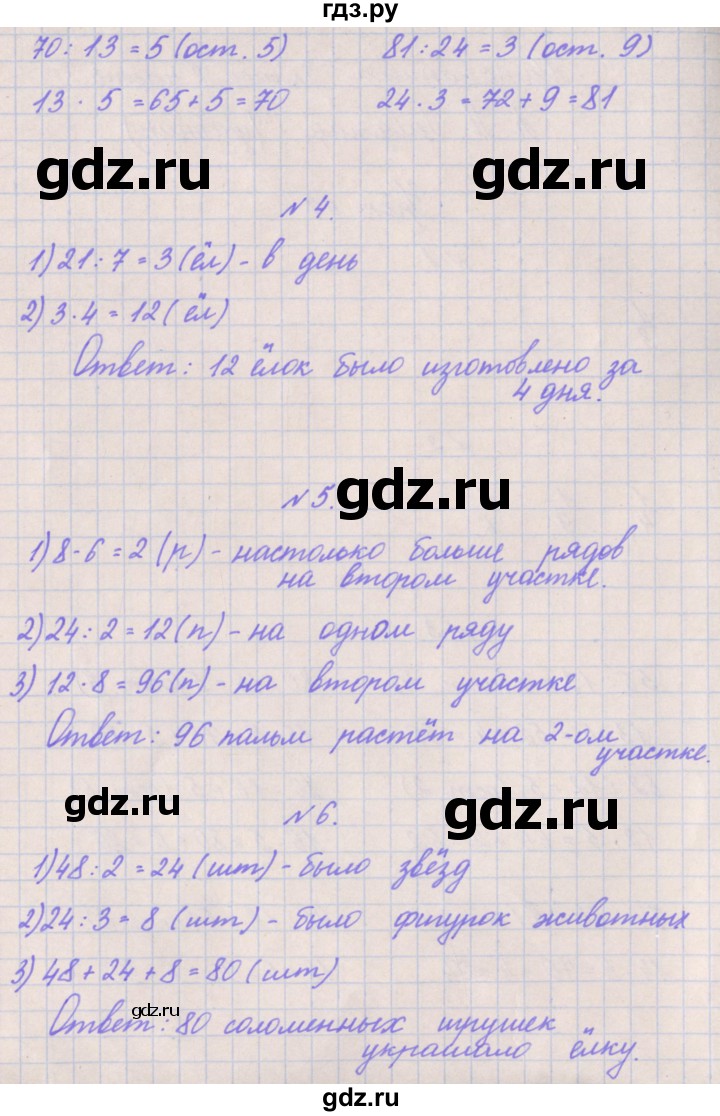 гдз.ру
70 : 13 = 5 (ост. 5) 81 : 24 = 3 (ост. 9)
13 · 5 = 65 + 5 = 70 24 · 3 = 72 + 9 = 81
gdz.ru gdz.ru
№ 4.
1) 21 : 7 = 3 (ёл) - в день
2) 3 · 4 = 12 (ёл)
Ответ: 12 ёлок было изготовлено за
4 дня.
gdz.ru
№ 5.
1) 8 - 6 = 2 (р) - настолько больше рядов
на втором участке.
2) 24 : 2 = 12 (п) - на одном ряду
3) 12 · 8 = 96 (п) - на втором участке
Ответ: 96 пальм растёт на 2-ом
участке.
gdz.ru gdz.ru
№ 6.
1) 48 : 2 = 24 (шт) - было звёзд
2) 24 : 3 = 8 (шт) - было фигурок животных
3) 48 + 24 + 8 = 80 (шт)
gdz.ru
Ответ: 80 соломенных игрушек
украшало ёлку.
gdz.ru